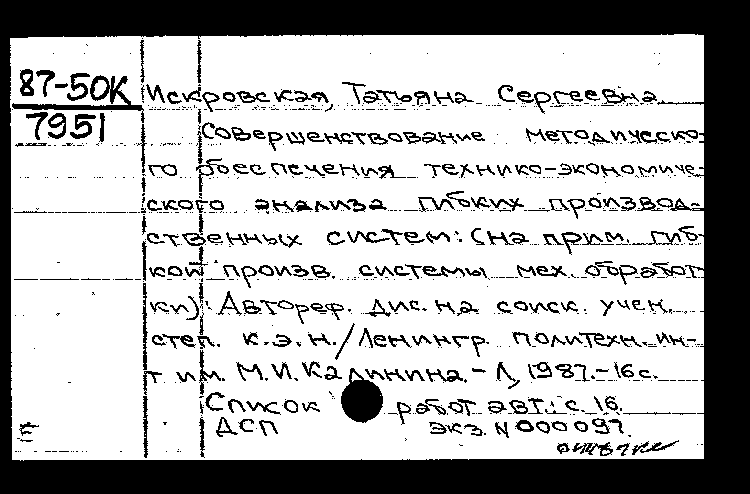 87-50К
7951
Искровская, Татьяна Сергеевна
Совершенствование методическо-
го обеспечения технико-экономиче-
ского анализа гибких производ-
ственных систем: (на прим. гиб-
кой произв. системы мех. обработ-
ки): Автореф. дис. на соиск. учен.
степ. к.э.н./Ленингр. политехн. ин-
т им. М.И. Калинина.- Л, 1987.-16с.
Список работ авт.: с. 16.
ДСП экз. N 000097.